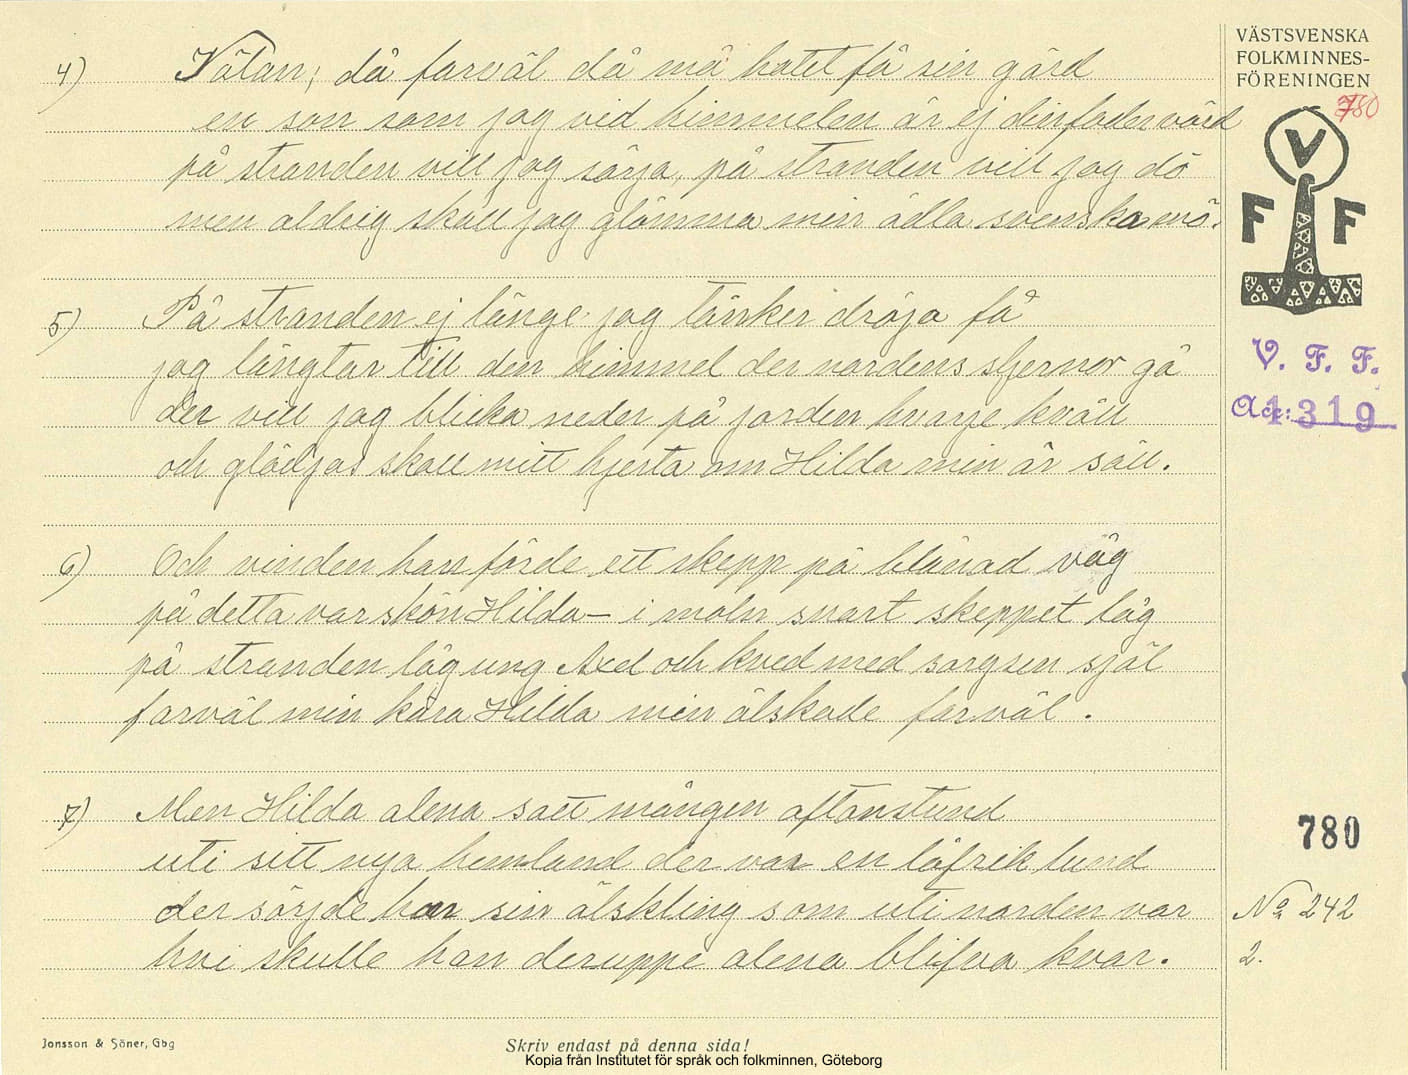 VÄSTSVENSKA
FOLKMINNES-
FÖRENINGEN
780
V
F F
V. F. F.
Acc: 1319
4) Nåtan, då farväl då må hatet få sin gärd
en son som jag vid himmelen är ej din fader värd
på stranden vill jag sörja, på stranden vill jag dö
men aldrig skall jag glömma min ädla svenska mö.
5) På stranden ej länge jag tänker dröja få
jag längtar till den himmel der nordens stjernor gå
der vill jag blicka neder på jorden hvarje kväll
och glädjas skall mitt hjerta om Hilda min är säll.
6) Och vinden han förde ett skepp på blånad våg
på detta var skön Hilda – i moln snart skeppet låg
på stranden låg ung Axel och kved med sorgsen själ
farväl min kära Hilda min älskade farväl.
7) Men Hilda alena satt mången aftonstund
uti sitt nya hemland der var en löfrik lund
der sörjde hon sin älskling som uti norden var
hvi skulle han deruppe alena blifva kvar.
780
No 242
2.
Jonsson & Söner, Gbg
Skriv endast på denna sida!
Kopia från Institutet för språk och folkminnen, Göteborg